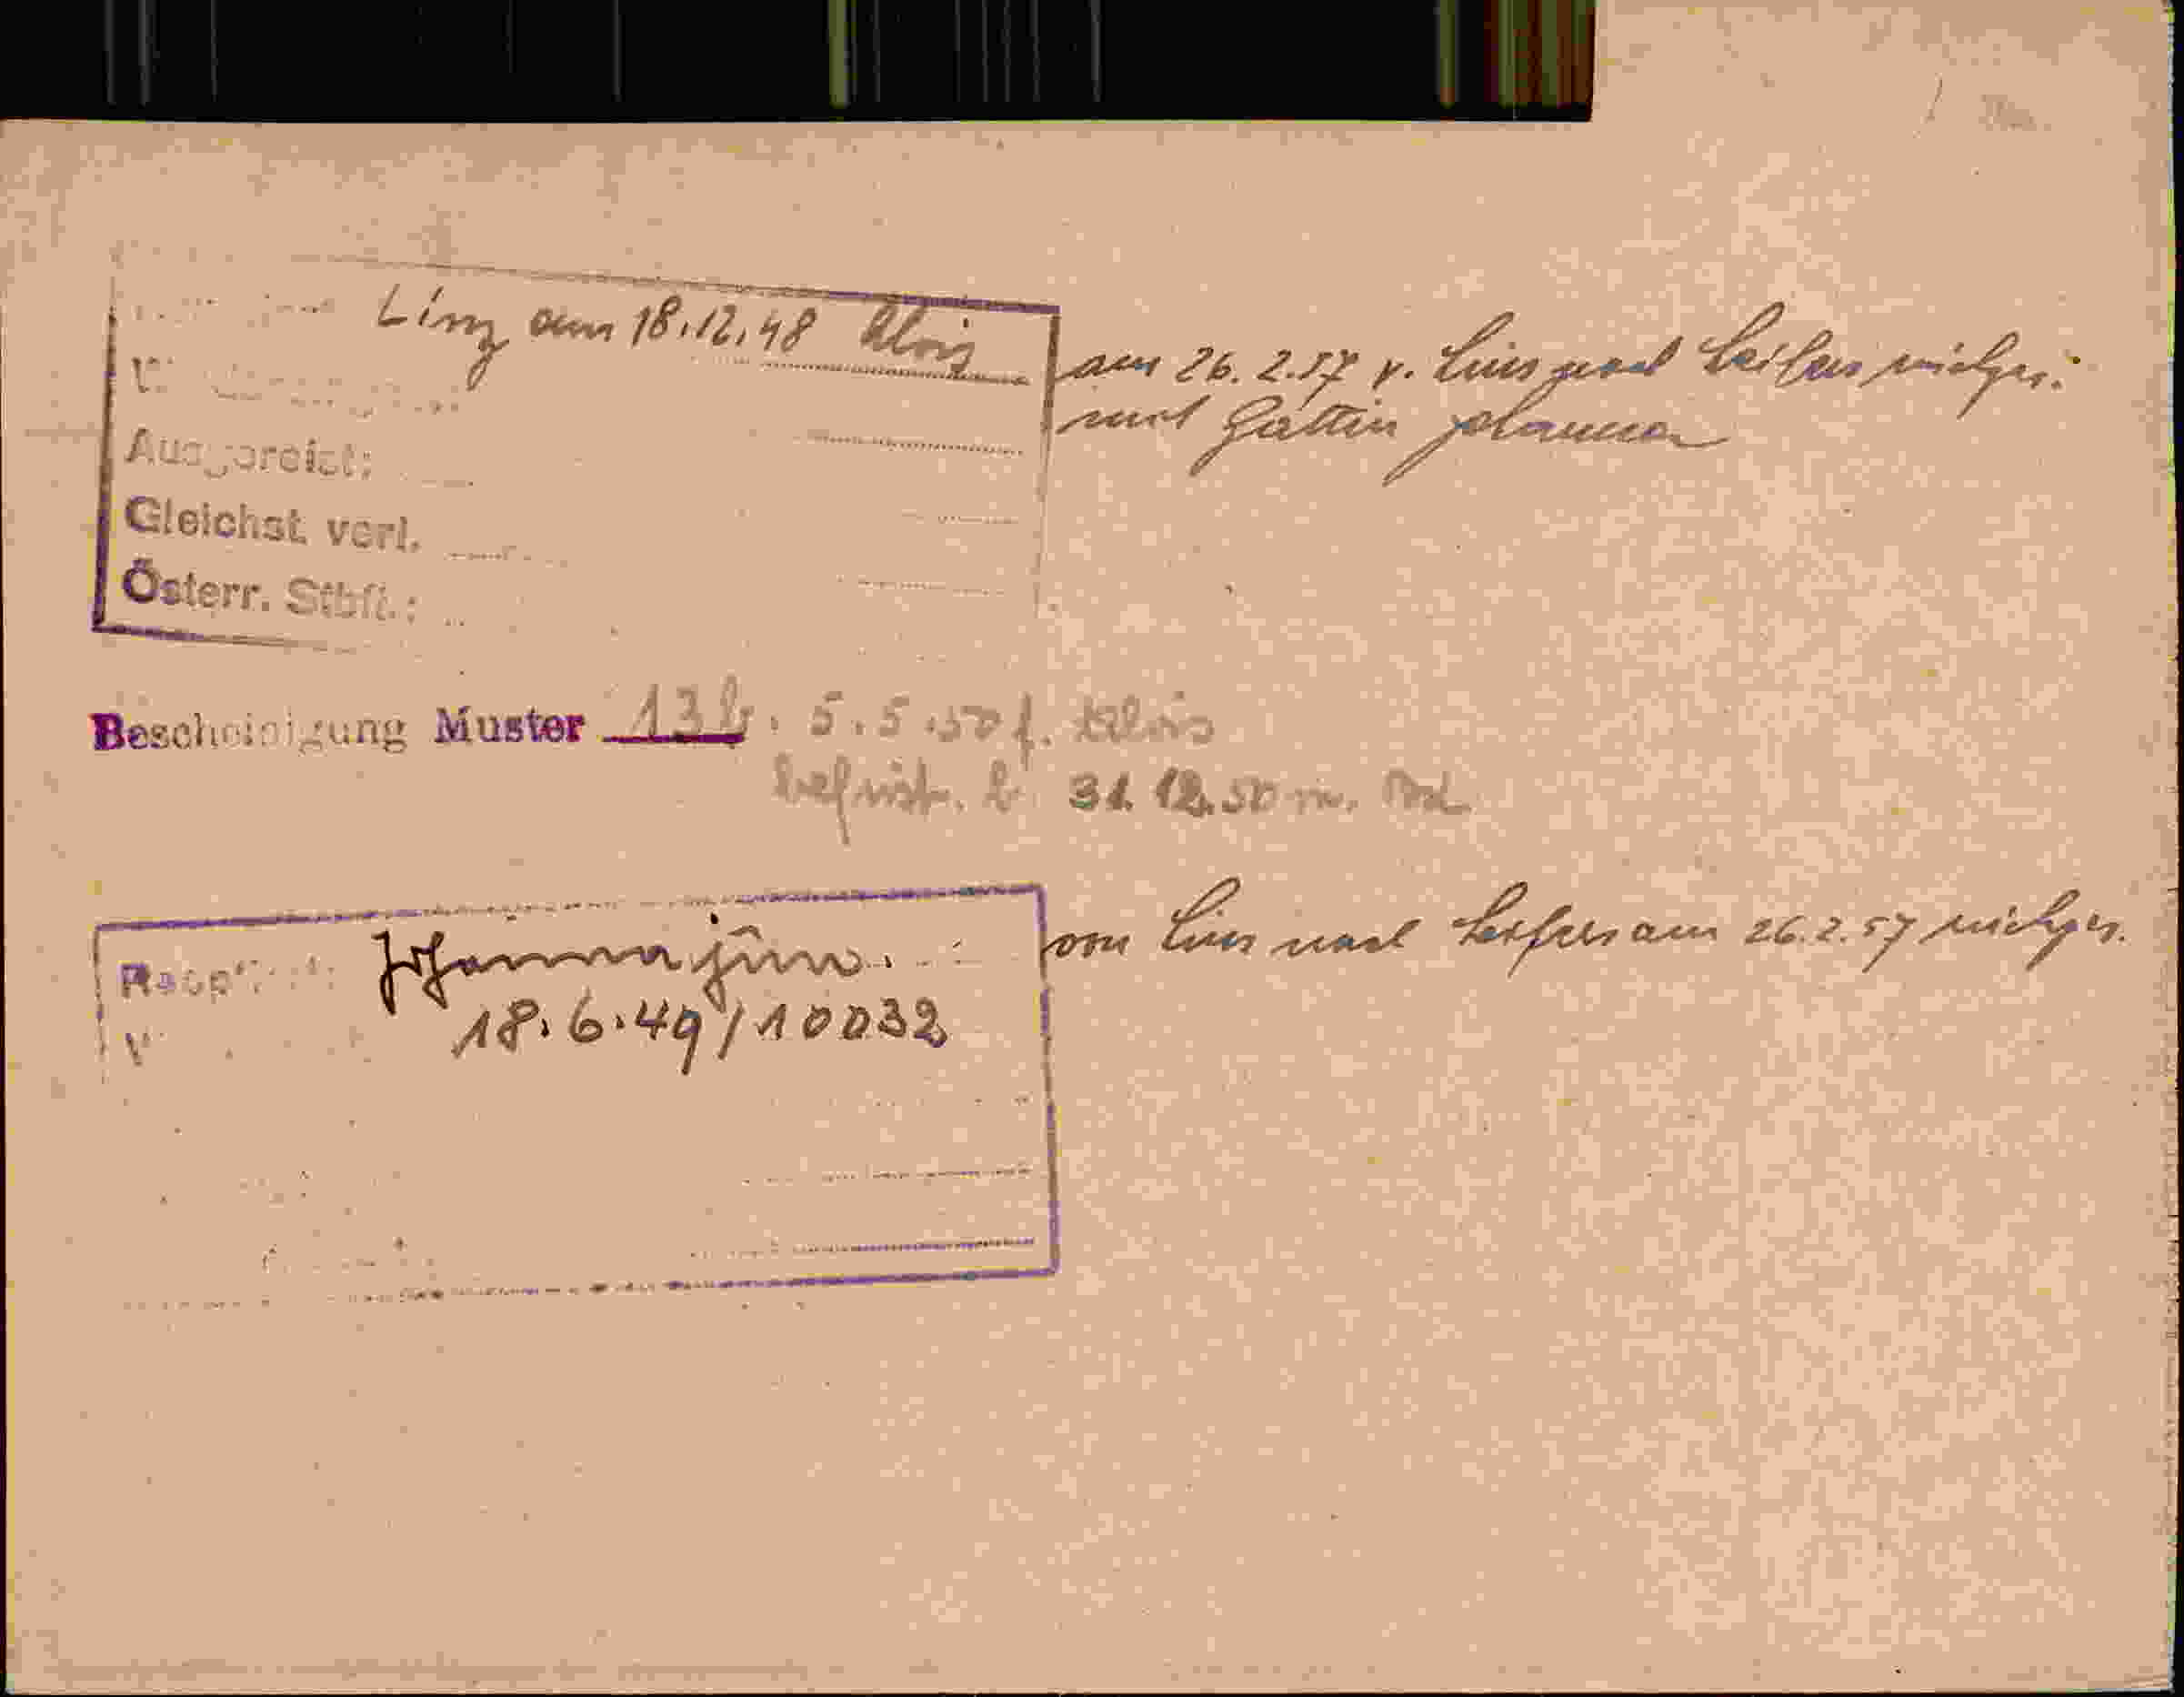 Linz am 18.12.48 Alois
am 26.2.57 v. Linz nach Leifers rückges.
mit Gattin Johanna
Ausgereist:
Gleichst. verl.
Österr. Stbft.:
Bescheinigung Muster 13b. 5.5.50 f. Alois
befrist. b. 31.12.50 m.
Johanna jun.
von Linz nach Leifers am 26.2.57 rückges.
18.6.49/10032